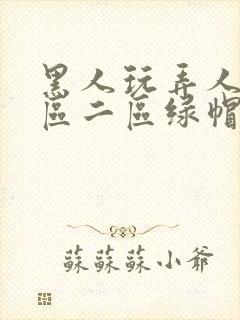 黑人玩弄人
區二區绿帽
蘇蘇蘇小爺